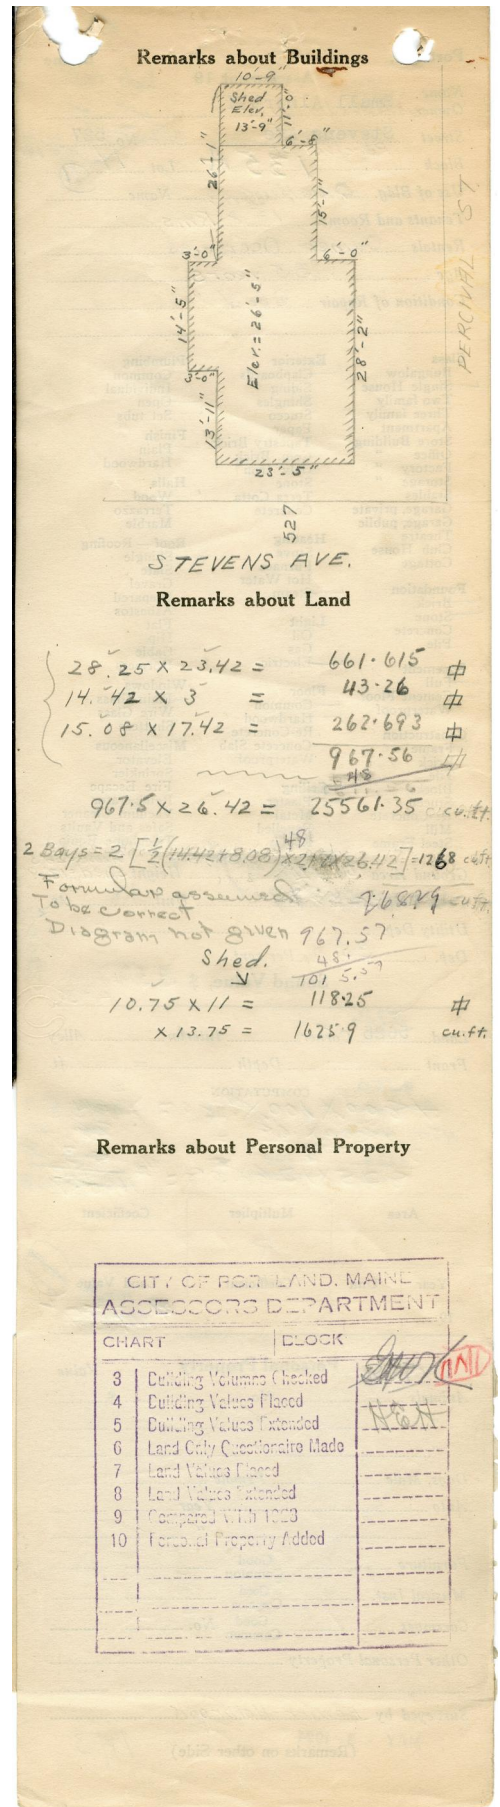 Remarks about Buildings
10'-9"
Shed
Elev.
13'-9"
11'-0"
6'-8"
26'-1"
15'-1"
3'-0"
6'-0"
14'-5"
Elev. = 26'-5"
28'-2"
3'-0"
13'-11"
23'-5"
PERCIVAL ST.
527
STEVENS AVE.
Remarks about Land
28.25 X 23.42 = 661.615
14.42 X 3 = 43.26
15.08 X 17.42 = 262.693
967.56
48
967.5 X 26.42 = 25561.35 cu.ft.
48
2 Bays = 2 [½(14.42+8.08) X 26.42] = 1268 cu ft
Formular assumed
To be correct
Diagram not given 967.57
48.
Shed. 1015.57
10.75 X 11 = 118.25
X 13.75 = 1625.9 cu.ft.
Remarks about Personal Property
CITY OF PORTLAND, MAINE
ASSESSORS DEPARTMENT
CHART BLOCK
3 Building Volumes Checked
4 Building Values Placed
5 Building Values Extended
6 Land Only Questionaire Made
7 Land Values Placed
8 Land Values Extended
9 Compared With 1923
10 Personal Property Added